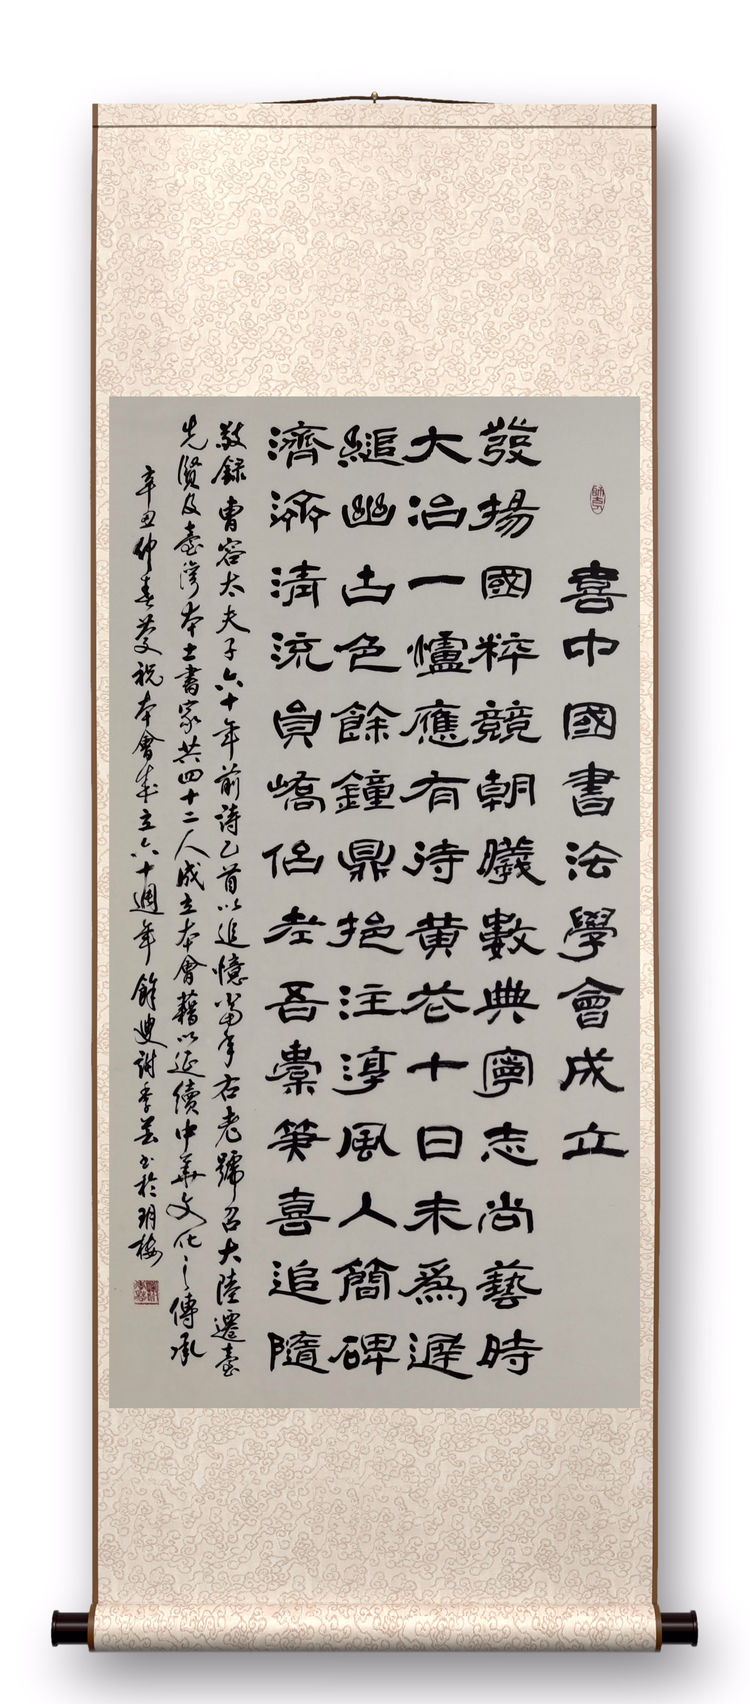 喜中國書法學會成立
發揚國粹競朝曦數典寧忘尚藝時
大冶一爐應有待黃花十日未為遲
縋幽古色餘鐘鼎挹注淳風人簡碑
濟濟清流員嶠侶老吾橐筆喜追隨
敬錄曹容太夫子六十年前詩乙首以追憶當年右老號召大陸遷臺
先賢及臺灣本土書家共四十二人成立本會藉以延續中華文化之傳承
辛丑仲春慶祝本會成立六十週年餘叟謝季芸書於玥樓